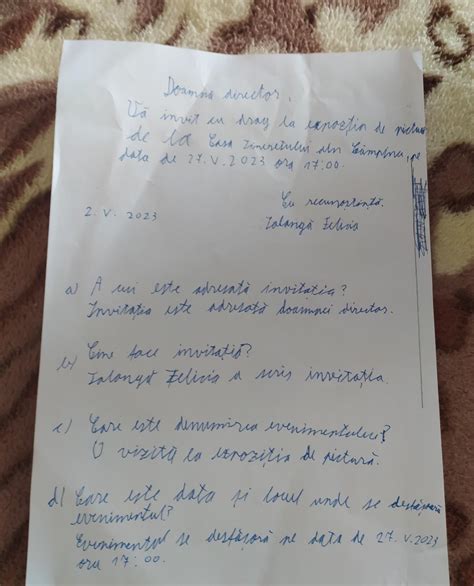 Doamna director,
Vă invit cu drag la expoziția de pictură
de la Casa Tineretului din Câmpina, pe
data de 27.V.2023 ora 17:00.
Cu recunoștință.
2.V.2023
Talangă Felicia
a) A cui este adresată invitatia?
Invitația este adresată doamnei director.
b) Cine face invitația?
Talangă Felicia a scris invitația.
c) Care este denumirea evenimentului?
O vizită la expoziția de pictură.
d) Care este data și locul unde se desfășoară
evenimentul?
Evenimentul se desfășoară pe data de 27.V.2023
ora 17:00.